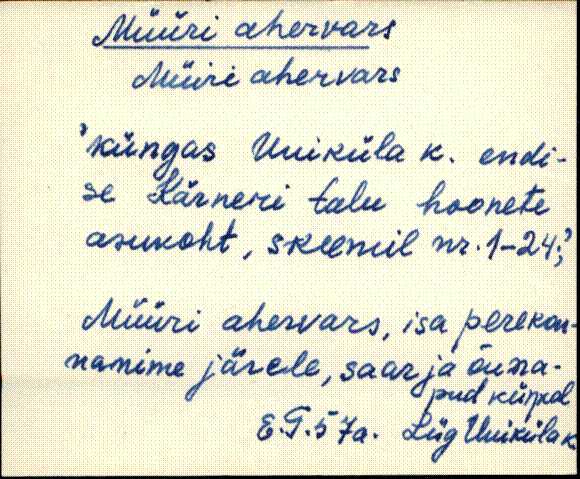 Müüri ahervars
Müiri ahervars
'küngas Uniküla k. endi-
se Kärneri talu hoonete
asukoht, skeemil nr. 1-24;'
Müüri ahervars, isa perekon-
nanime järele, saar ja õuna-
pud
E.T. 57a. Lüg Uniküla k.